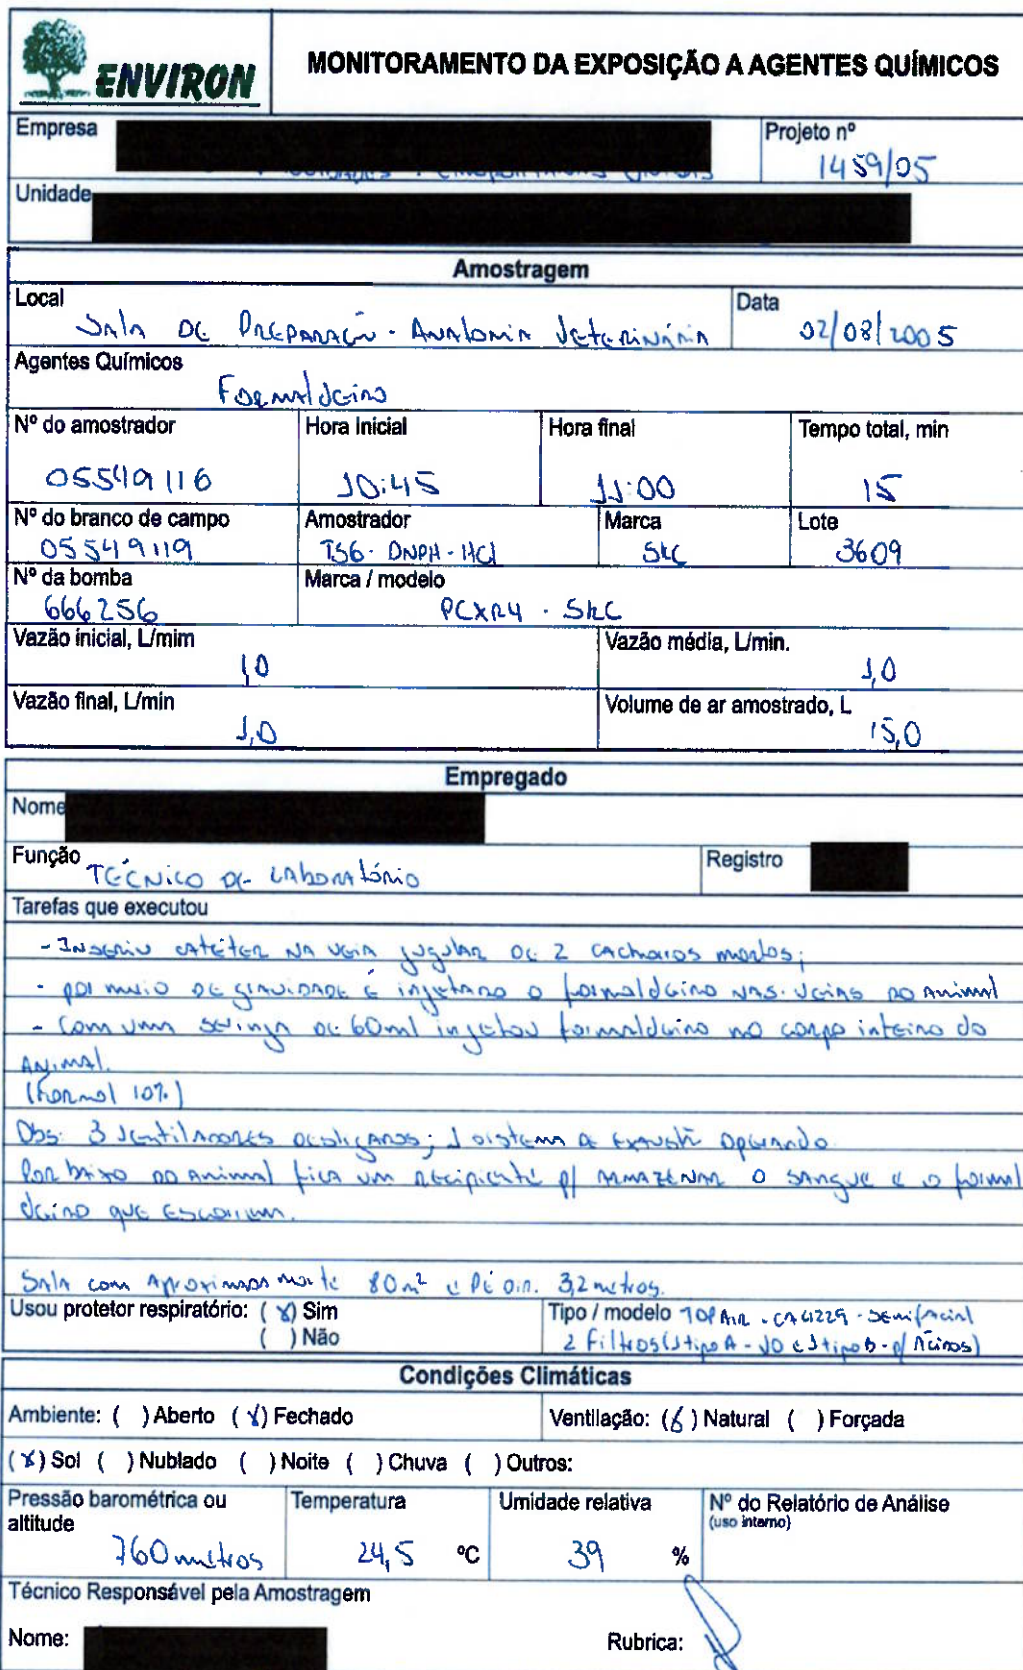 ENVIRON
MONITORAMENTO DA EXPOSIÇÃO A AGENTES QUÍMICOS
Empresa
Projeto nº
1459/05
Unidade
Amostragem
Local
Sala de Preparação - Anatomia Veterinária
Data
02/08/2005
Agentes Químicos
Formaldeído
Nº do amostrador
Hora inicial
Hora final
Tempo total, min
05549116
10:45
11:00
15
Nº do branco de campo
Amostrador
Marca
Lote
05549119
TS6 - DNPH - HCl
SKC
3609
Nº da bomba
Marca / modelo
666256
PCXR4 - SKC
Vazão inicial, L/mim
Vazão média, L/min.
1,0
1,0
Vazão final, L/min
Volume de ar amostrado, L
1,0
15,0
Empregado
Nome
Função
Técnico de Laboratório
Registro
Tarefas que executou
- Inseriu catéter na veia jugular de 2 cachorros mortos;
- por meio de gravidade é injetado o formaldeído nas veias do animal
- Com uma seringa de 60ml injetou formaldeído no corpo inteiro do
animal.
(Formol 10%)
Obs: 3 ventiladores desligados; 1 sistema de exaustão operando.
Por baixo do animal fica um recipiente p/ armazenar o sangue e o formal
deído que escorrem.
Sala com aproximadamente 80m² e Pé dir. 3,2 metros.
Usou protetor respiratório: ( x ) Sim
( ) Não
Tipo / modelo TOP Air - CA 4229 - semifacial
2 Filtros (1 tipo A - VO e 1 tipo B - p/ Ácidos)
Condições Climáticas
Ambiente: ( ) Aberto ( x ) Fechado
Ventilação: ( x ) Natural ( ) Forçada
( x ) Sol ( ) Nublado ( ) Noite ( ) Chuva ( ) Outros:
Pressão barométrica ou
altitude
Temperatura
Umidade relativa
Nº do Relatório de Análise
(uso interno)
760 metros
24,5 ºC
39 %
Técnico Responsável pela Amostragem
Nome:
Rubrica: